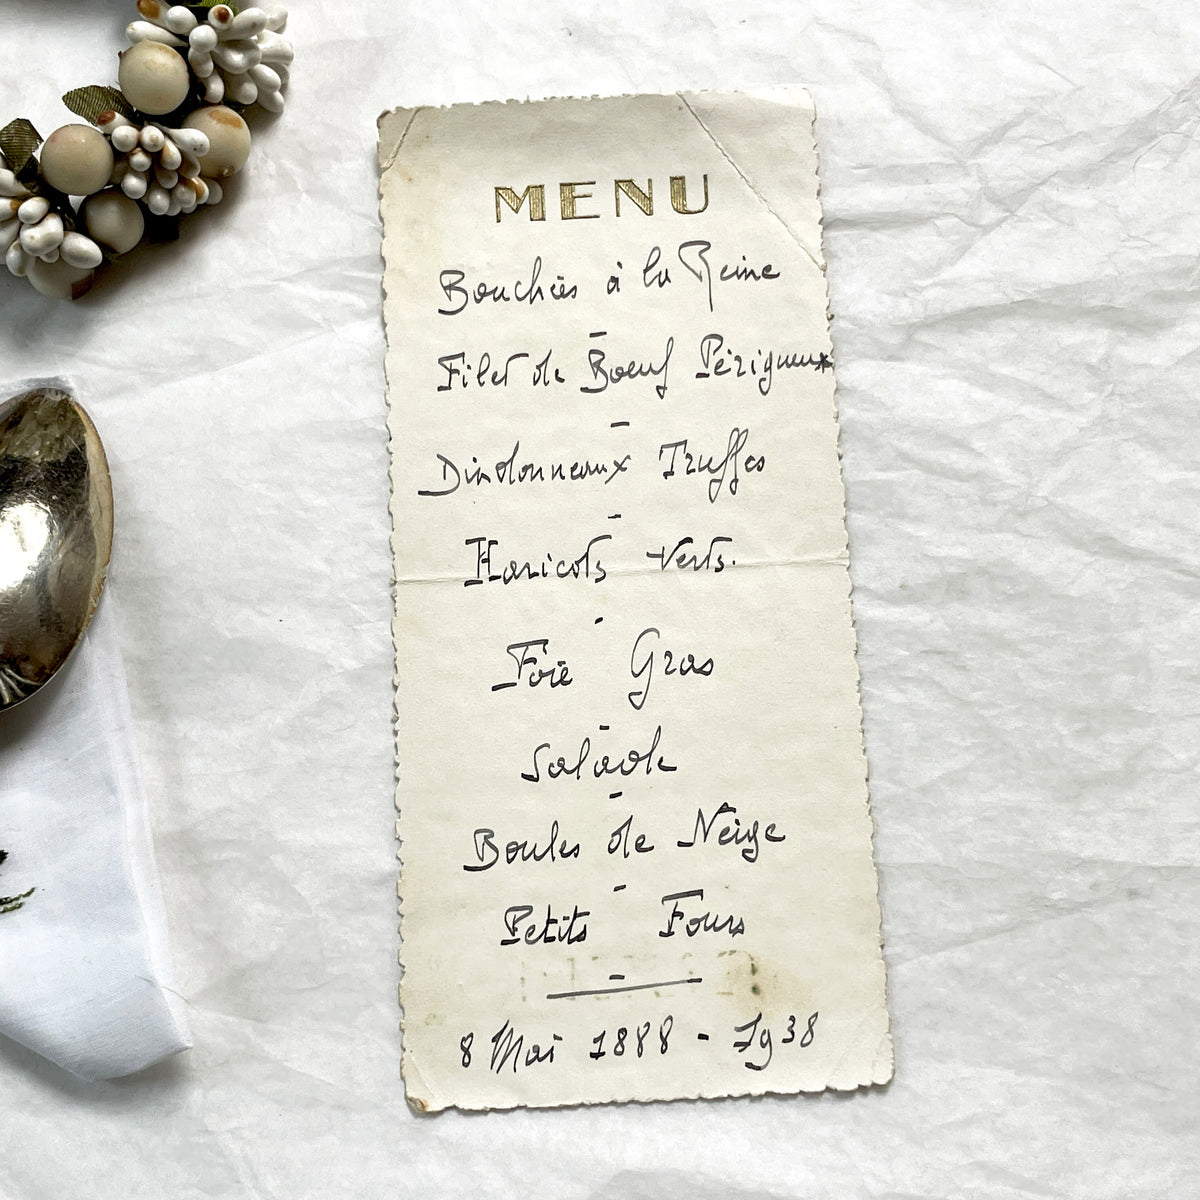 MENU
Bouchées à la Reine
-
Filet de Boeuf Périgueux
-
Dindonneaux Truffes
-
Haricots Verts.
-
Foie Gras
-
Salade
-
Boules de Neige
-
Petits Fours
-
8 Mai 1888 - 1938